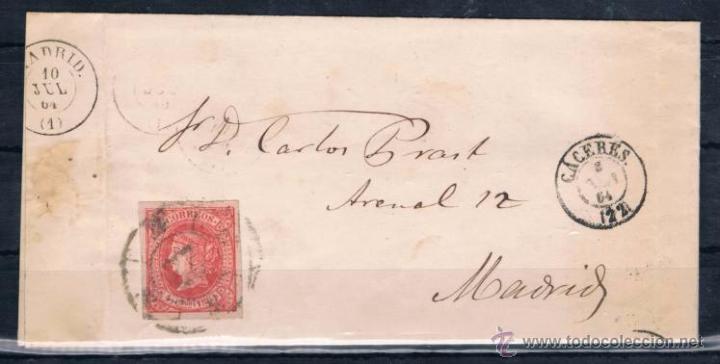 MADRID.
10
JUL
64
(1)
Sr. D. Carlos Prast
Arenal 12
Madrid
CÁCERES.
8
64
(22)
CORREOS
www.todocoleccion.net